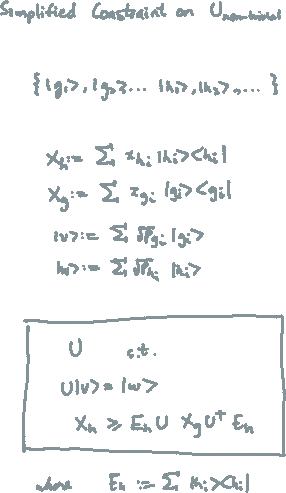 Simplified Constraint on U_non-trivial
{|g₁>, |g₂>... |h₁>, |h₂>, ... }
X_h := Σ x_{h_i} |h_i><h_i|
X_g := Σ x_{g_i} |g_i><g_i|
|v> := Σ √p_{g_i} |g_i>
|w> := Σ √p_{h_i} |h_i>
U s.t.
U|v> = |w>
X_h ≥ E_h U X_g U† E_h
where E_h := Σ |h_i><h_i|